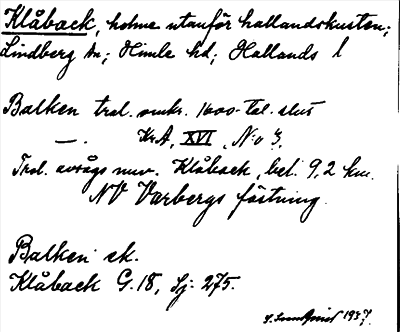 Klåback, holme utanför hallandskusten;
Lindberg sn; Himle hd; Hallands l
Balken trol. omkr. 1600-tal. slut
—.— KrA, XVI, N:o 3.
Trol. avsågs nuv. Klåback, bel. 9,2 km.
NV Varbergs fästning.
Balken sk.
Klåback G. 18, Sj: 275.
1937.